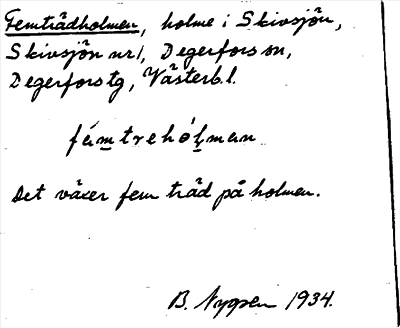 Femträdholmen, holme i Skivsjön,
Skivsjön nr 1, Degerfors sn,
Degerfors tg, Västerb. l.
fémtrehólman
Det växer fem träd på holmen.
B. 1934.